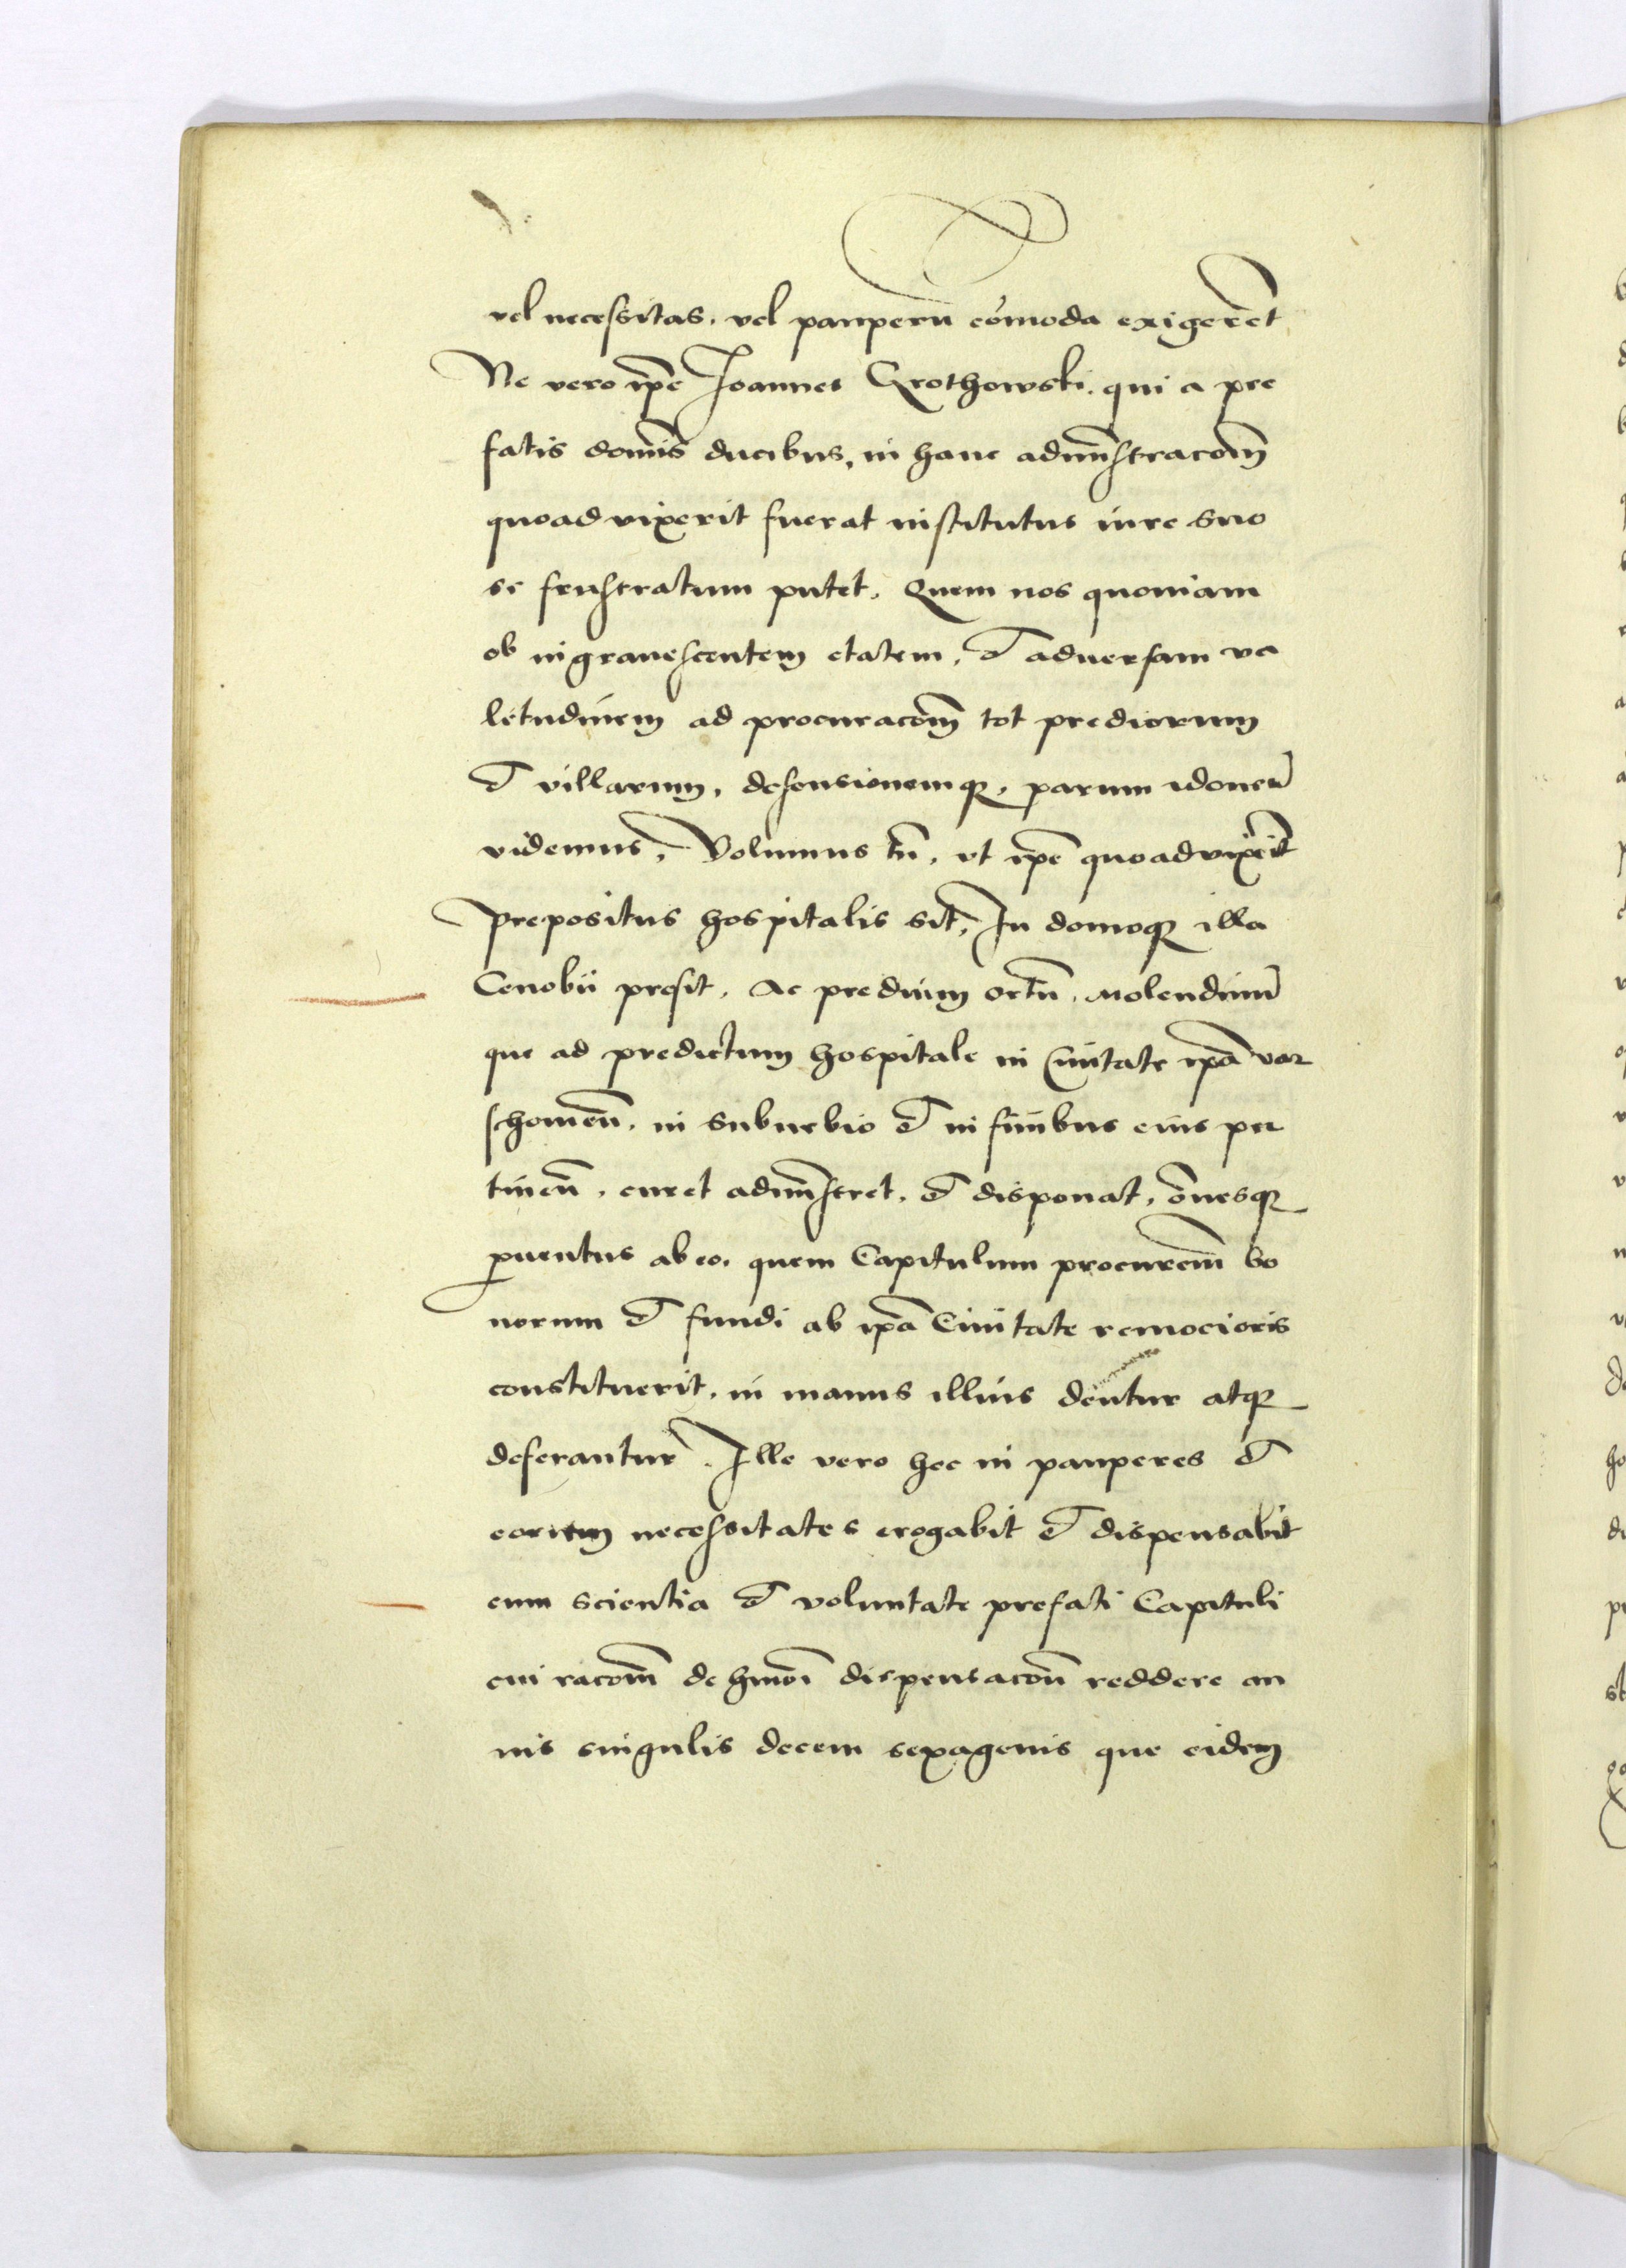 vel necessitas. vel pauperū cōmoda exigerēt
Ne vero ip̄e Joannes Crothowski. qui a pre
fatis domīs ducibus, in hanc admīstracoēm
quoad vixerit fuerat institutus iure suo
se frustratum putet. Quem nos quoniam
ob ingrauescentem etatem, et aduersam va
letudinem ad procuracoēm tot prediorum
et villarum, defensionemq3, parum idoneū
videmus, Volumus tn̄, vt ip̄e quoad vixerit
prepositus hospitalis sit, In domoq3 illa
Cenobii presit, Ac predium ortū, Molendinū
que ad predictum hospitale in Ciuitate ip̄a var
schouien̄, in suburbio et in finibus eius per
tinen̄, curet admīstret, et disponat, ōnesq3
ꝓuentus ab eo, quem Capitulum procurem̄ bo
norum et fundi ab ip̄a Ciuitate remocioris
constituerit, in manus illius dentur atq3
deferantur. Ille vero hec in pauperes et
eorum necessitates erogabit et dispensabit
cum scientia et voluntate prefati Capituli
cui racoēm de hmōi dispensacoēn reddere an
nis singulis decem sexagenis que eidem